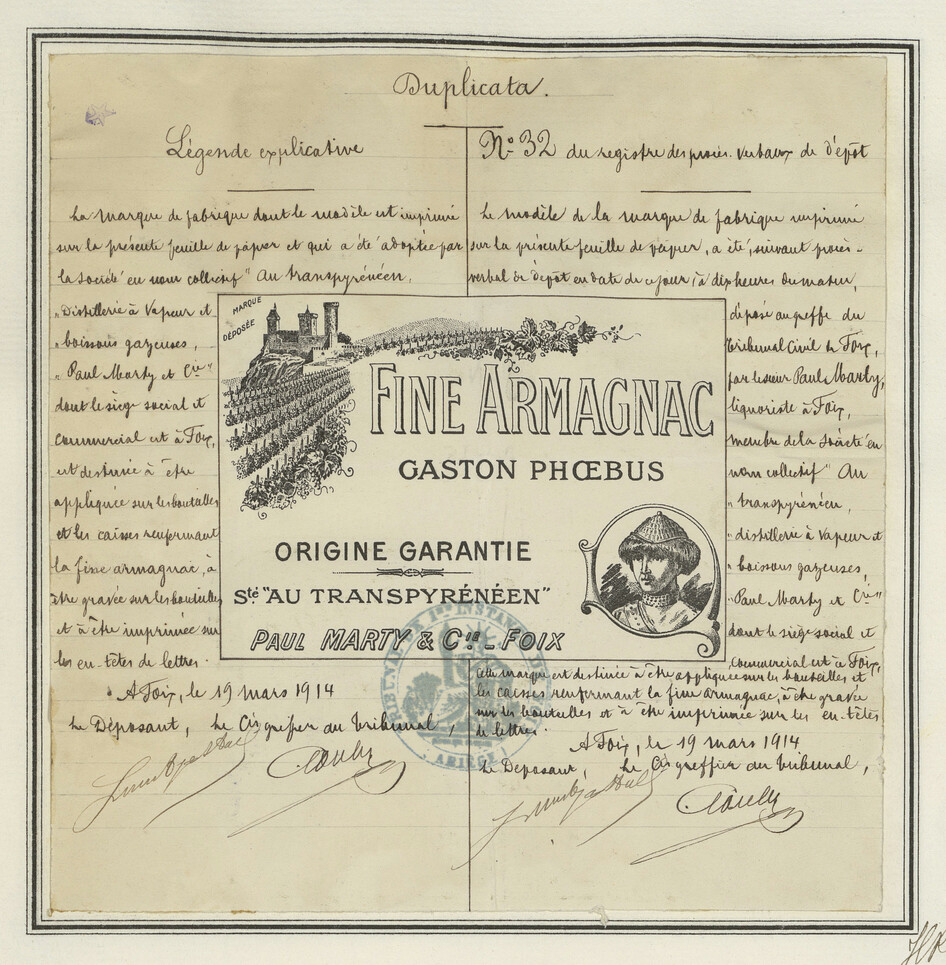 Duplicata.
Légende explicative
La marque de fabrique dont le modèle est imprimé
sur la présente feuille de papier et qui a été adoptée par
la société en nom collectif "Au transpyrénéen,
"Distillerie à Vapeur et
"boissons gazeuses,
"Paul Marty et Cie"
dont le siège social et
commercial est à Foix,
est destinée à être
appliquée sur les bouteilles
et les caisses renfermant
la fine armagnac, à
être gravée sur les bouteilles
et à être imprimée sur
les en-têtes de lettres.
A Foix, le 19 mars 1914
Le Déposant, Le Cis greffier du Tribunal,
N° 32 du registre des procès-verbaux de dépôt
Le modèle de la marque de fabrique imprimé
sur la présente feuille de papier, a été, suivant procès-
verbal de dépôt en date de ce jour, à dix heures du matin,
déposé au greffe du
Tribunal Civil de Foix,
par le sieur Paul Marty,
liquoriste à Foix,
membre de la société en
nom collectif "Au
"transpyrénéen,
"distillerie à vapeur et
"boissons gazeuses,
"Paul Marty et Cie"
dont le siège social et
commercial est à Foix,
Cette marque est destinée à être appliquée sur les bouteilles et
les caisses renfermant la fine armagnac, à être gravée
sur les bouteilles et à être imprimée sur les en-têtes
de lettres.
A Foix, le 19 mars 1914
Le Déposant, Le Cis greffier du Tribunal,
MARQUE
DÉPOSÉE
FINE ARMAGNAC
GASTON PHŒBUS
ORIGINE GARANTIE
Sté "AU TRANSPYRÉNÉEN"
PAUL MARTY & CIE - FOIX
ARIÈGE